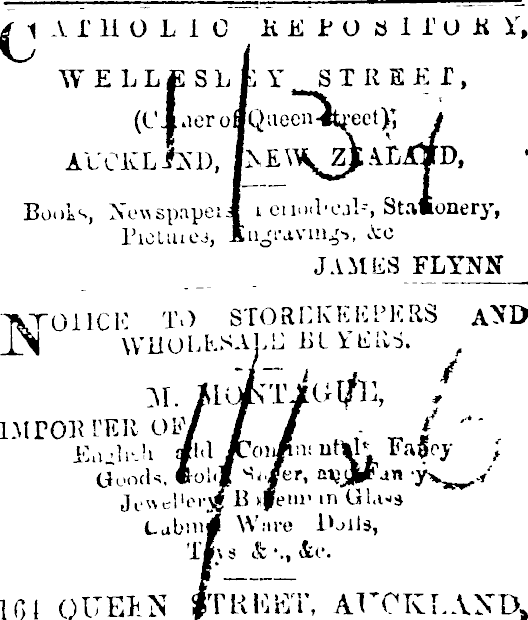 CATHOLIC REPOSITORY,
WELLESLEY STREET,
(Corner of Queen-street),
AUCKLAND, NEW ZEALAND,
Books, Newspapers Periodicals, Stationery,
Pictures, Engravings, &c
JAMES FLYNN
NOTICE TO STOREKEEPERS AND
WHOLESALE BUYERS.
M. MONTAGUE,
IMPORTER OF
English and Continental Fancy
Goods, Gold, Silver, and Fancy
Jewellery, Bohemian Glass
Cabinet Ware Dolls,
Toys &c., &c.
164 QUEEN STREET, AUCKLAND,